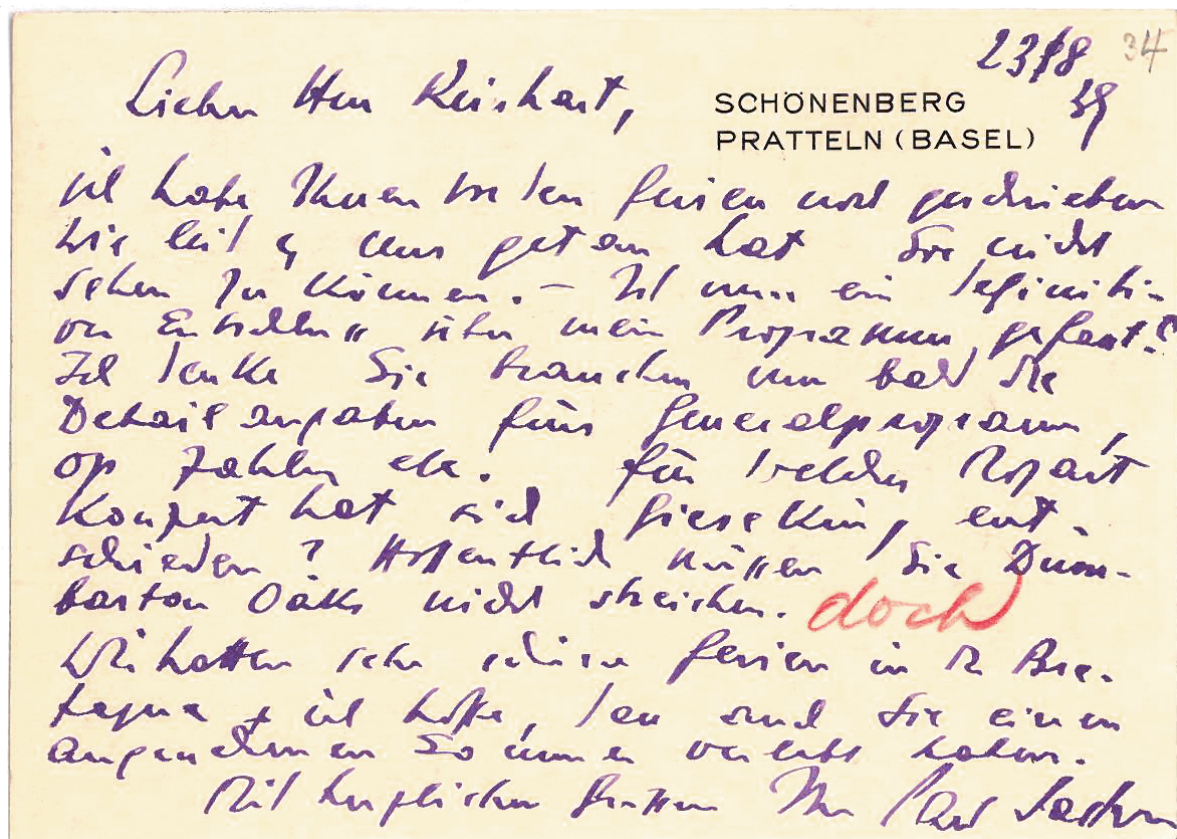 23/8 34
39
SCHÖNENBERG
PRATTELN (BASEL)
Lieber Herr Reinhart,
ich habe Ihnen vor den Ferien noch geschrieben
wie leid es uns getan hat Sie nicht
sehen zu können. – Ist nun ein definiti-
ver Entschluss über mein Programm gefasst?
Ich denke Sie brauchen nun bald die
Detailangaben fürs Generalprogramm,
op Zahlen etc. Für welches Mozart
Konzert hat sich Gieseking ent-
schieden? Hoffentlich müssen Sie Dum-
barton Oaks nicht streichen. doch
Wir hatten sehr schöne Ferien in der Bre-
tagne + ich hoffe, dass auch Sie einen
angenehmen Sommer verlebt haben.
Mit herzlichen Grüssen Ihr Paul Sacher